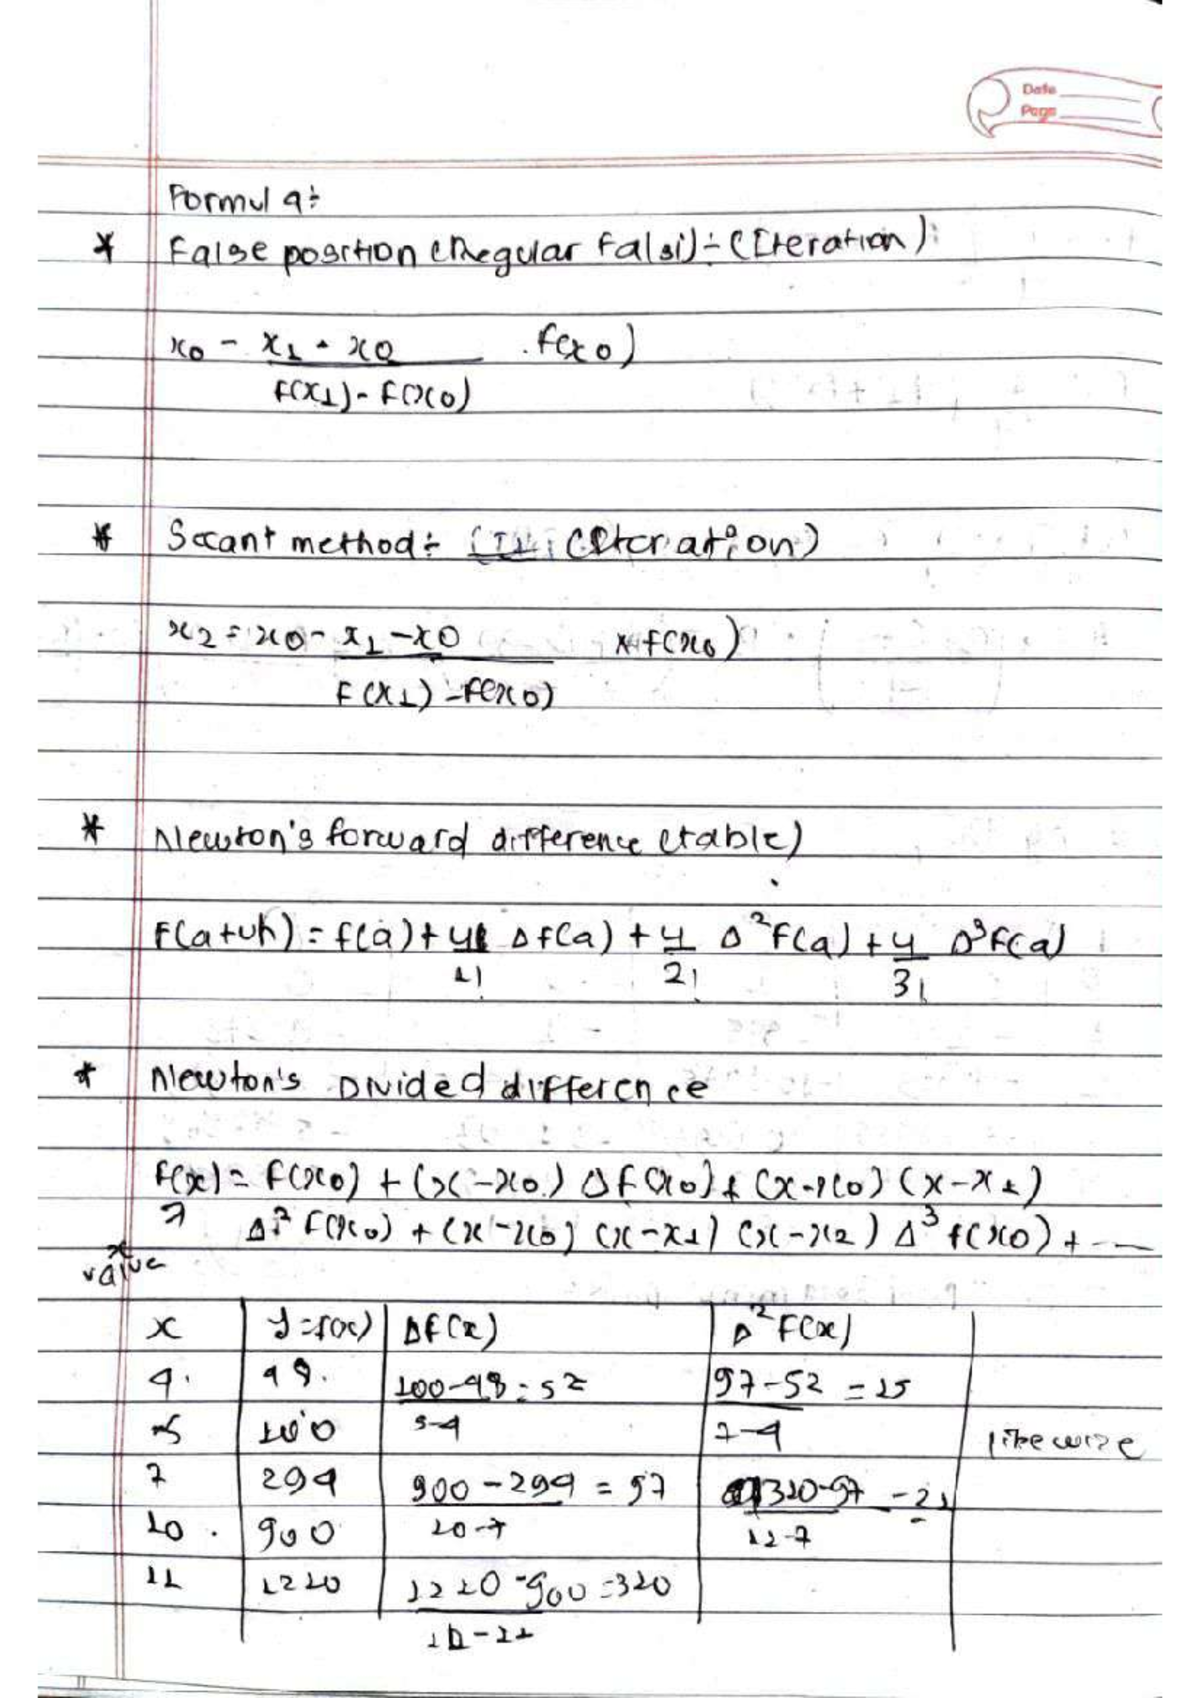 Date
Page
Formula÷
* False position (Regular falsi)÷(Iteration):
x0 - x1 - x0 . f(x0)
f(x1) - f(x0)
* Secant method÷ (Iteration)
x2 = x0 - x1 - x0 * f(x0)
f(x1) - f(x0)
* Newton's forward difference (table)
f(a+uh) = f(a) + u Δf(a) + u Δ²f(a) + u Δ³f(a)
1! 2! 3!
* Newton's Divided difference
f(x) = f(x0) + (x-x0) Δf(x0) + (x-x0) (x-x1)
Δ² f(x0) + (x-x0) (x-x1) (x-x2) Δ³ f(x0) + ---
x value
x y=f(x) Δf(x) Δ²f(x)
4 48 100-48 = 52 97-52 = 15
5 100 5-4 7-4 likewize
7 294 900-294 = 97 310-97 = 21
10 900 10-7 11-7
11 1210 1210-900 = 310